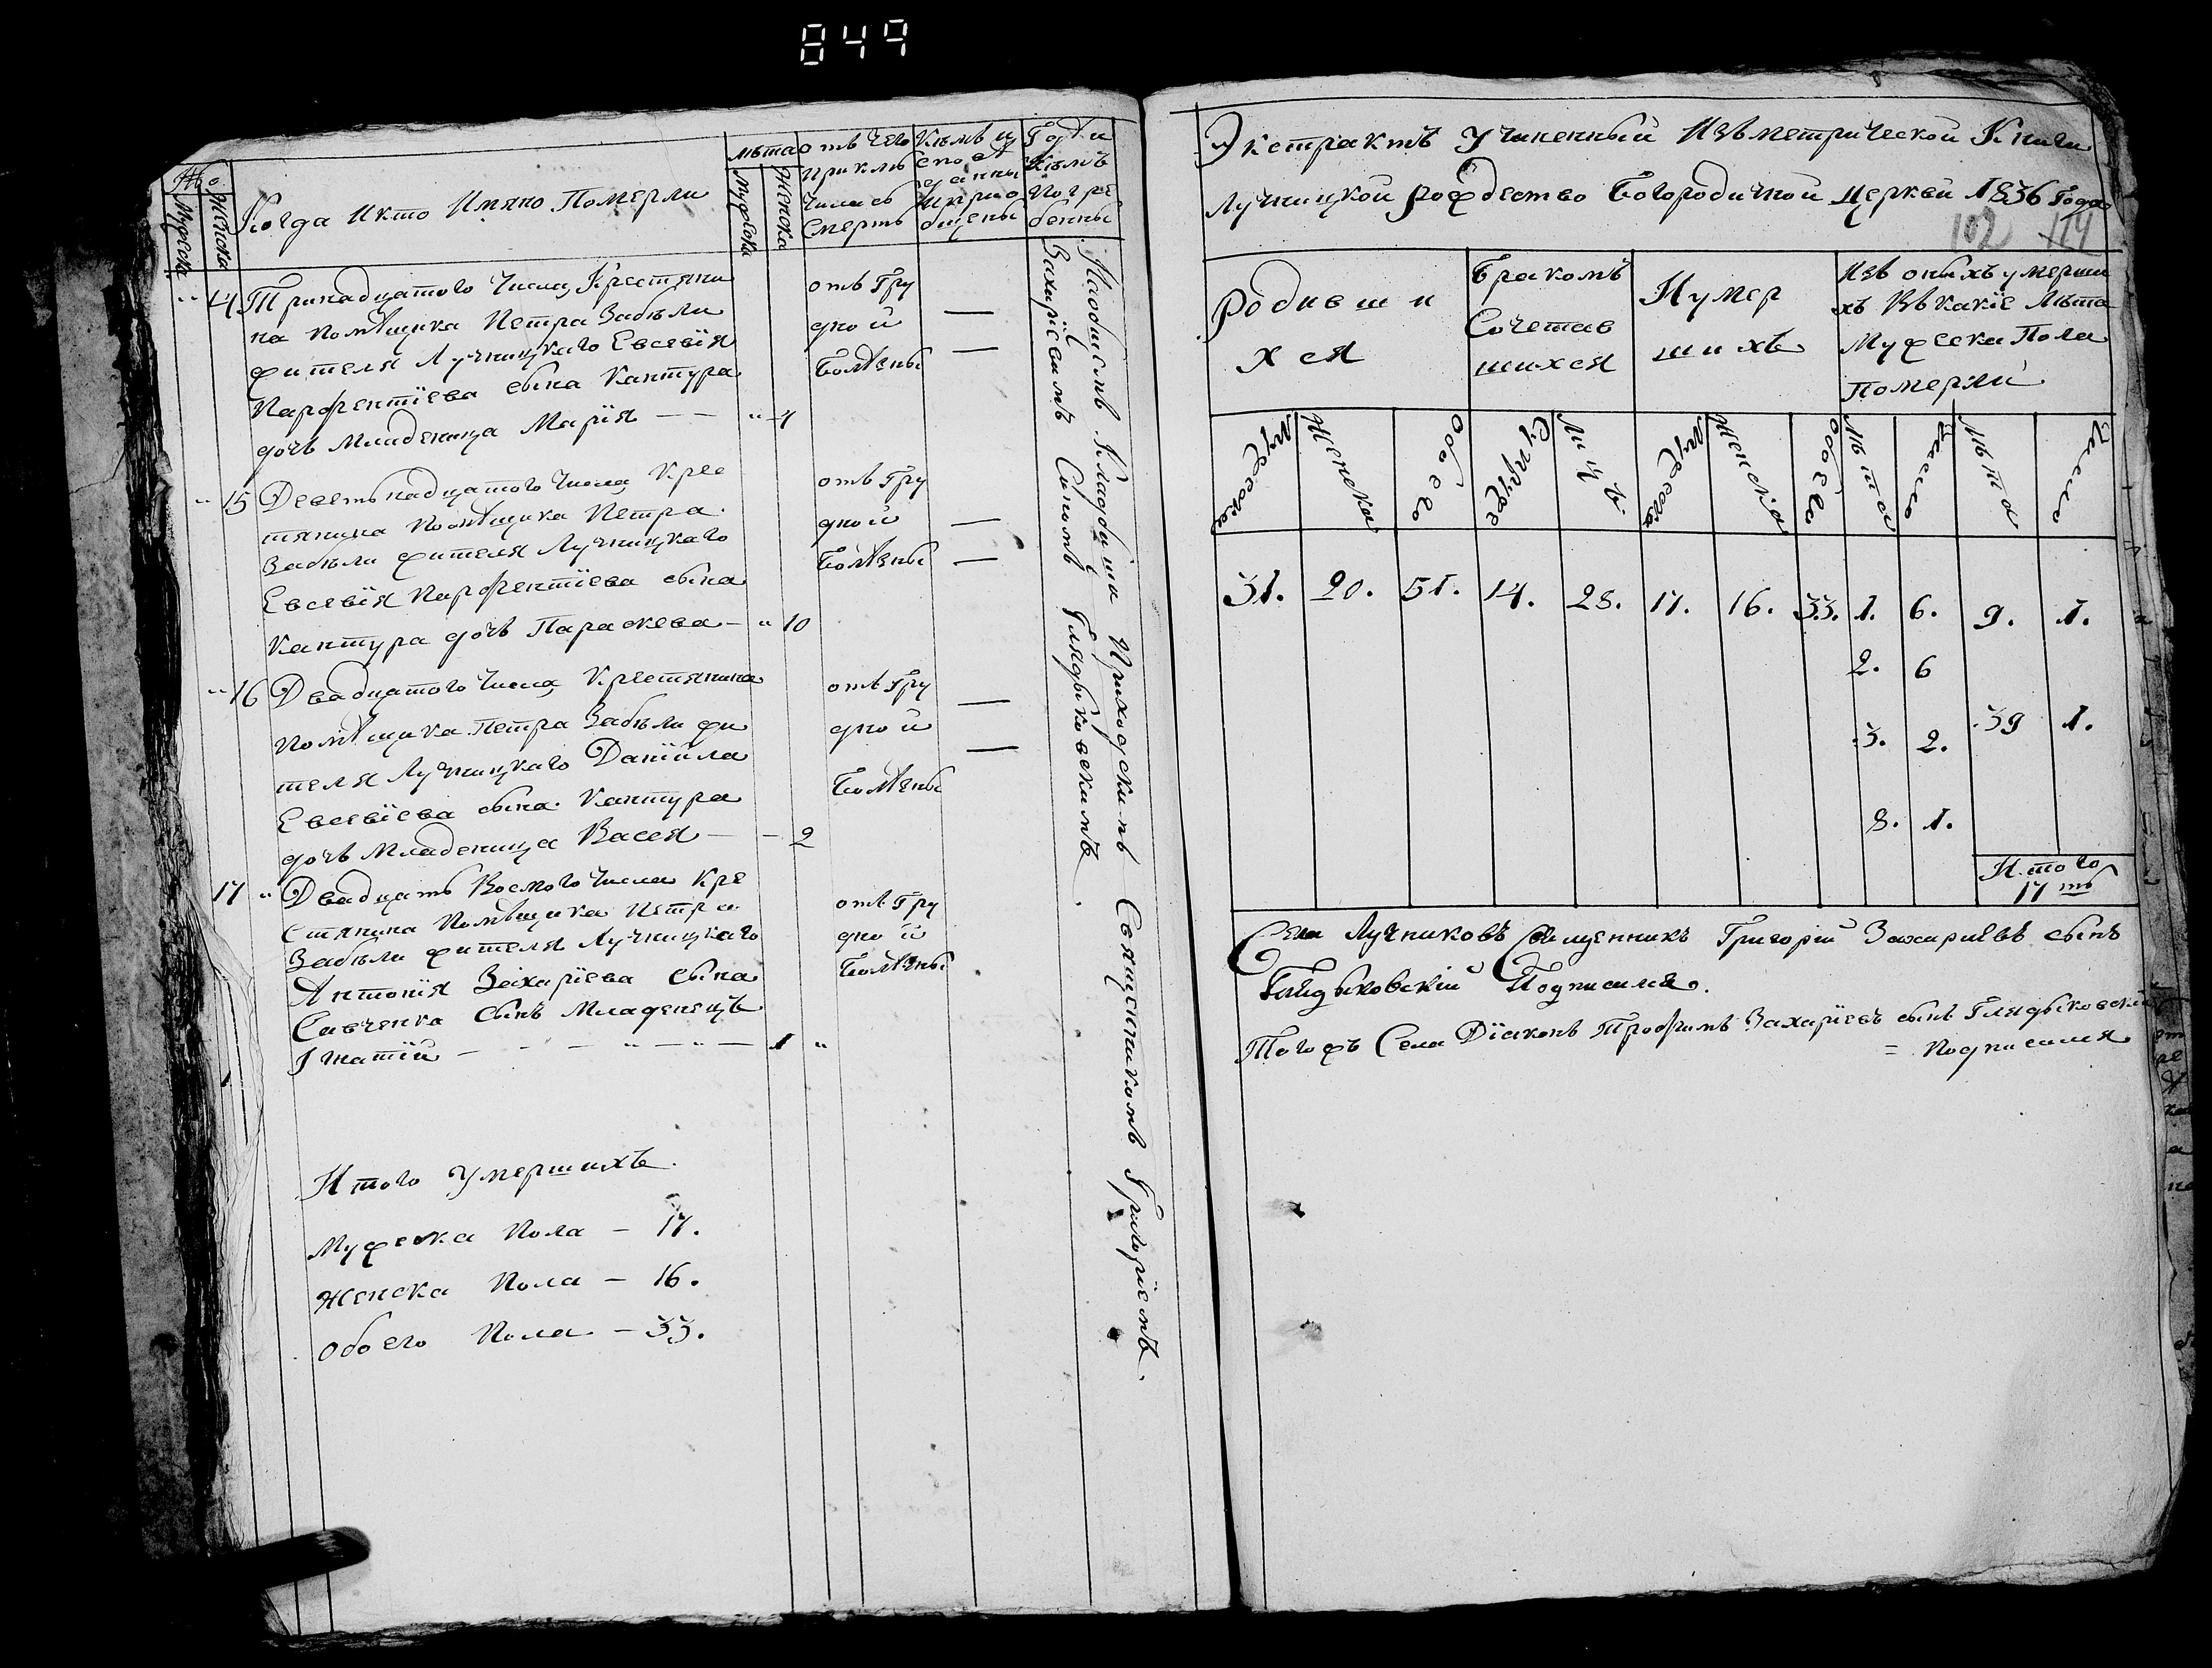 849
№
Мужска
Женска
Когда Икто Имяно Померли
лѣта
Мужска
Женска
отъ Чего
Приклю
Чиласъ
Смерть
Кѣмъ и
споѣ
дцаны
И прио
бщены
Гдѣ и
Кѣмъ
Погре
бенны
" 14 Тринадцатого Числа, Крестяни
на Помѣщика Петра Забѣли
жителя Лучницкаго Евсевїя
Парфентїева сына Кантура
дочь Младеница Марїя — — " 4
отъ Гру
дной
Болѣзны
" 15 Деветьнадцатого Числа, Крес
тянина Помѣщика Петра
Забѣли жителя Лучницкаго
Евсевїя Парфентїева сына
Кантура дочь Параскева — " 10
отъ Гру
дной
Болѣзны
" 16 Двадцатого Числа Крестянина
Помѣщика Петра Забѣли жи
теля Лучницкаго Данїила
Евсевїева сына Кантура
дочь Младеница Васся — — 2
отъ Гру
дной
Болѣзны
17 " Двадцать Восмого Числа Кре
стянина Помѣщика Петра
Забѣли жителя Лучницкаго
Антонїя Захарїева сына
Савченка Сынъ Младенецъ
Игнатїй — - - " — " — 1 "
отъ Гру
дной
Болѣзны
На обще́мъ Кладбища Приходскимъ Священникомъ Григорїемъ
Захарїевимъ Синомъ Глядыковскимъ
Итого Умершихъ
Мужеска Пола — 17.
Женска Пола — 16.
Обоего Пола — 33.
Экстрактъ Учиненный Изъ метрической Книги
Лучницкой Рождество Богородичной Церкви 1836 Года
102 114
Родивши
хся
Бракомъ
Сочетав
шихся
Иумер
шихъ
Изъ оныхъ умерши
хъ Въ какїе Лѣта
Мужеска Пола
Померли
Мужеска
Женска
Обоего
Супруже
Лицъ
Мужеска
Женска
Обоего
Лѣта
Число
Лѣта
Число
31. 20. 51. 14. 28. 17. 16. 33. 1. 6. 9. 1.
2. 6
3. 2. 39 1.
8. 1.
Итого
17 ть
Села Лучниковъ Священникъ Григорїй Захарїевъ сынъ
Глядыковскїй Подписался.
Тогожъ Села Дїаконъ Трофимъ Захарїевъ сынъ Глядыковскїй
= Подписался